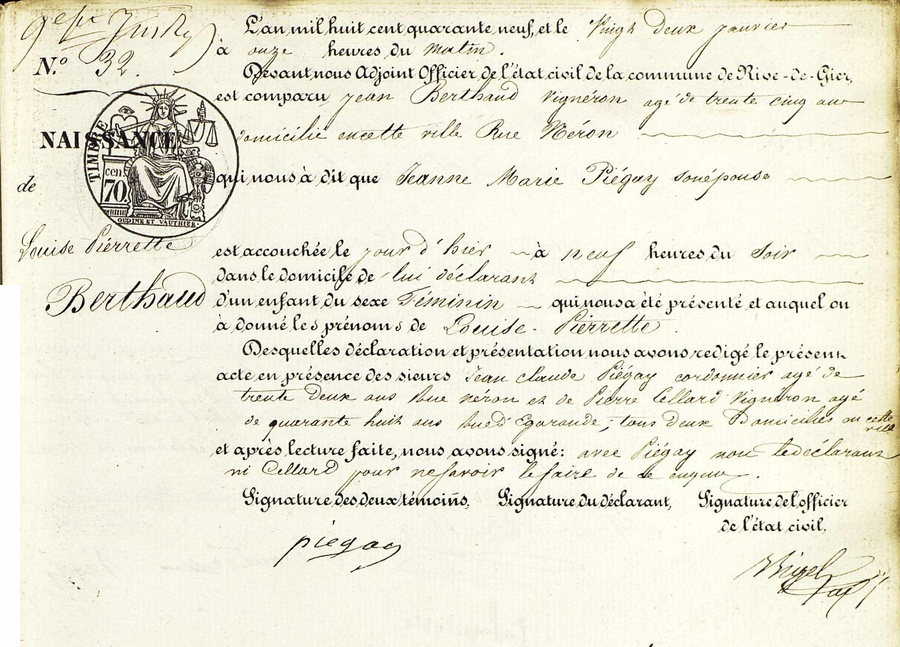 N.º 32.
NAISSANCE
de
Louise Pierrette
Berthaud
TIMBRE
70
cen.
OUDINÉ ET VAUTHIER
L'an mil huit cent quarante neuf, et le Vingt deux janvier
à onze heures du matin.
Devant nous Adjoint Officier de l'état civil de la commune de Rive-de-Gier,
est comparu Jean Berthaud Vignéron agé de trente cinq ans
domicilié en cette ville Rue Néron
qui nous à dit que Jeanne Marie Piégay son épouse
est accouchée le jour d'hier à neuf heures du Soir
dans le domicile de lui déclarant
d'un enfant du sexe Féminin qui nous a été présenté et auquel on
à donné les prénoms de Louise-Pierrette.
Desquelles déclaration et présentation nous avons redigé le présent
acte en présence des sieurs Jean Claude Piégay cordonnier agé de
trente deux ans Rue néron et de Pierre Cellard Vigneron agé
de quarante huit ans Rue d'Egarande, tous deux Domiciliés en cette ville
et après lecture faite, nous avons signé: avec Piégay non le déclarant
ni Cellard pour ne savoir le faire de ce enquis.
Signature des deux témoins, Signature du déclarant, Signature de l'officier
de l'état civil.
piegay